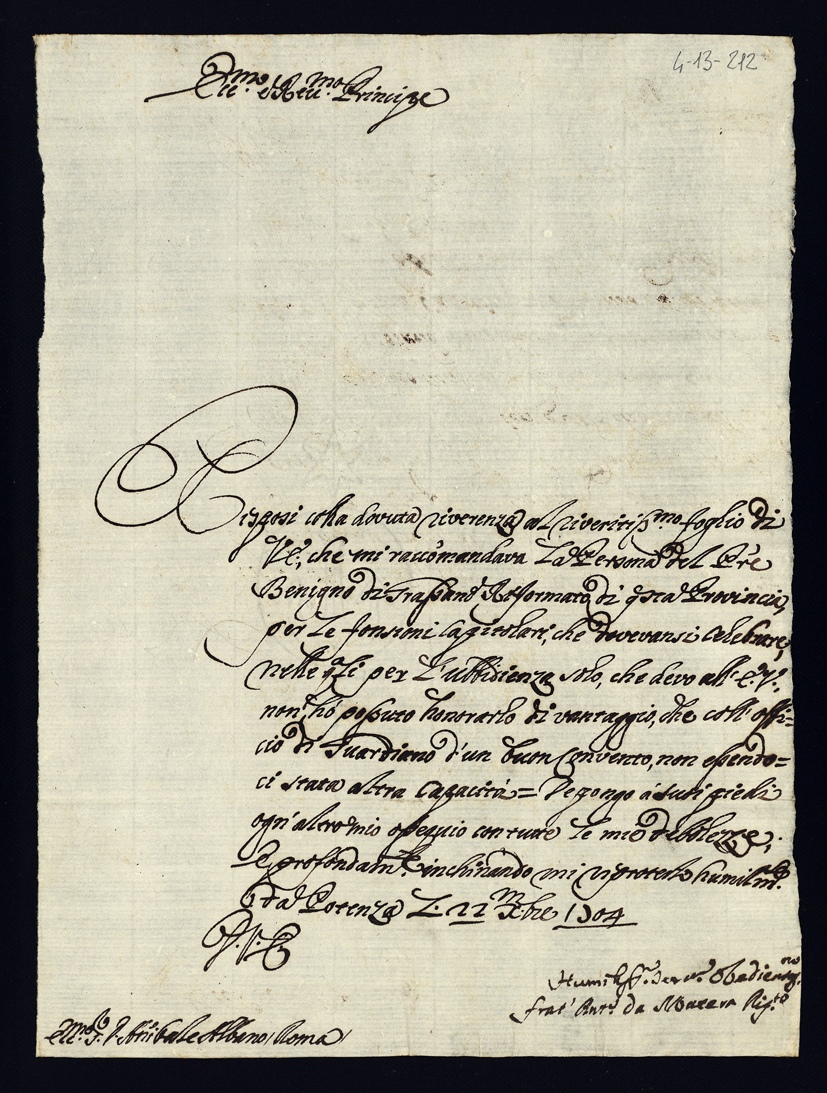 4-13-212
Ecc.mo e Rev.mo Principe
Risposi colla dovuta riverenza al riveritiss.mo foglio di
V.E., che mi raccomandava la Persona del Pre
Benigno di Riformato di qsta Provincia,
per le fonsioni Capitolari, che dovevansi celebrare,
nelle qli per l'ubbidienza solo, che devo all' E.V.,
non hò possuto honorarlo di vantaggio, che coll' offi=
cio di Guardiano d'un buon Convento, non essendo=
ci stata altra capacità= Depongo à suoi piedi
ogn'altro mio ossequio con tutte le mie debbolezze;
E profondam.te inchinando mi riprotesto humilm.e
Di V.E. Da Potenza Li 22 Xbre 1704
Humiliss.o Ser.re Obedientis.mo
frat' Ant.o da Matera
Ecc.mo S. D. Annibale Albano, Roma